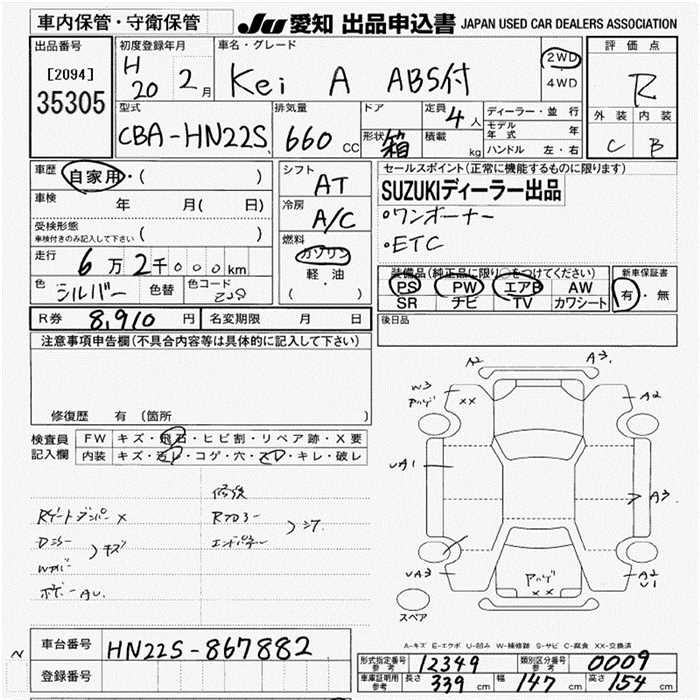 車内保管・守衛保管
JU 愛知 出品申込書 JAPAN USED CAR DEALERS ASSOCIATION
出品番号
[2094]
35305
初度登録年月
H 20 2月
車名・グレード
Kei A ABS付
2WD
4WD
評価点
R
外装 内装
C B
型式
CBA-HN22S
排気量
660 cc
ドア
形状 箱
定員 4人
積載 kg
ディーラー・並行
モデル年式 年
ハンドル 左・右
車歴 自家用・( )
車検 年 月( 日)
受検形態
車検付きのみ記入して下さい ( )
走行 6万2千000km
色 シルバー 色替 色コード Z2S
R券 8,910円 名変期限 月 日
シフト
AT
冷房
A/C
燃料
ガソリン
軽・油
( )
セールスポイント(正常に機能するものに限ります)
SUZUKIディーラー出品
・ワンオーナー
・ETC
装備品(純正品に限り○をつけてください)
PS PW エアB AW
SR ナビ TV カワシート
新車保証書
有・無
後日品
注意事項申告欄(不具合内容等は具体的に記入して下さい)
修復歴 有(箇所 )
検査員記入欄
FW キズ・飛石・ヒビ割・リペア跡・X要
内装 キズ・汚レ・コゲ・穴・スレ・キレ・破レ
A2 A3
W3
XX
A2
UA1
A3
UA3
XX
A2
U1
スペア
A-キズ E-エクボ U-凹み W-補修跡 S-サビ C-腐食 XX-交換済
車台番号 HN22S-867882
登録番号
N
形式指定番号参考 12349 類別区分番号参考 0009
車庫証明用参考 長さ 339cm 幅 147cm 高さ 154cm